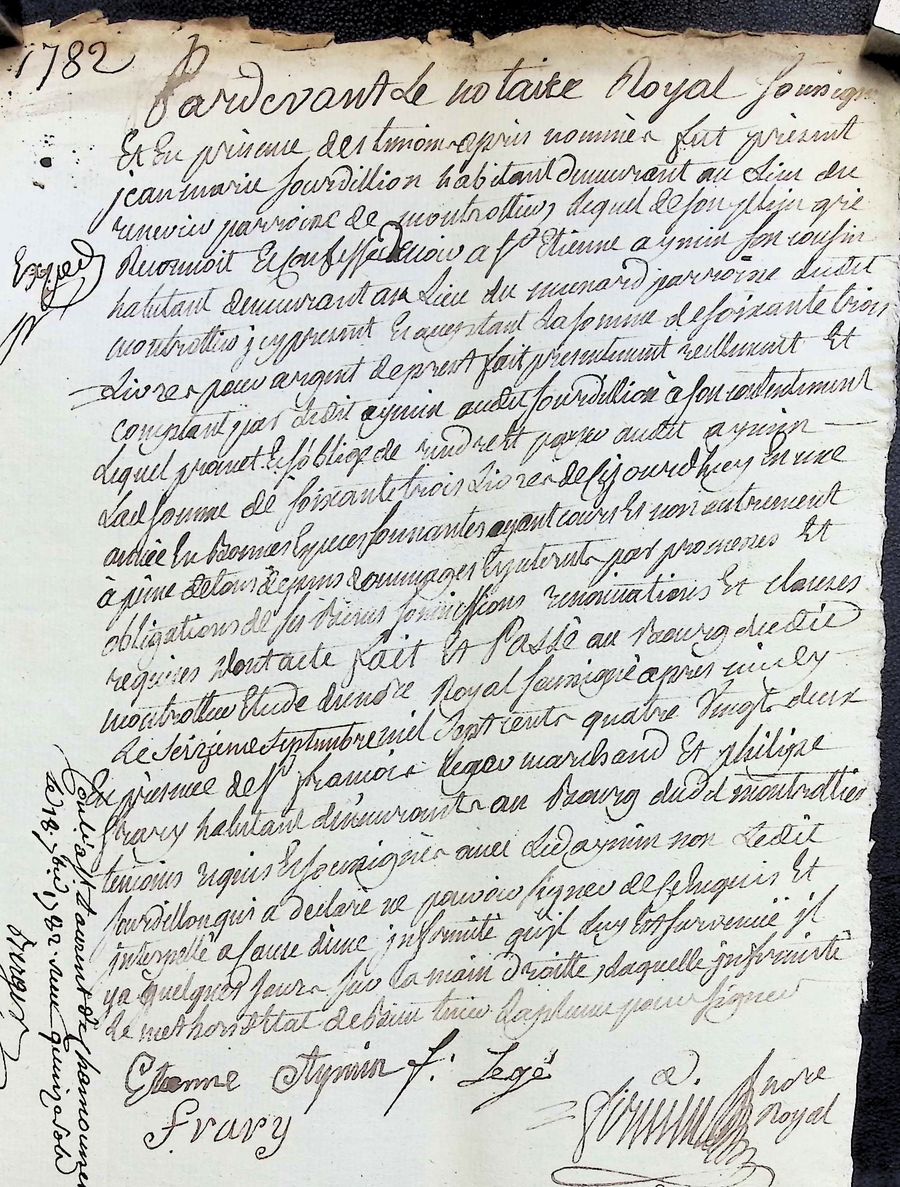 1782
Pardevant Le notaire Royal soussigné
Et En présence des temoins apres nommés fut présent
jean marie sourdillion habitant demeurant au Lieu du
parroisse de montrottier, Lequel de son plein gré
Reconnoit Et confesse devoir a Sr Etienne aymin son cousin
habitant demeurant au Lieu du munard parroisse dudit
montrottier jcy present Et acceptant La somme de soixante trois
Livres pour argent de prest fait présentement réellement Et
comptant par Ledit aymin audit sourdillion à son contentement
Lequel promet Et s'oblige de rendre Et payer audit aymin
Lad somme de soixante trois Livres de cejourdhuy En une
année En Bonnes Espèces sonnantes ayant cours Et non autrement
à peine de tous dépens dommages Et jnterets par promesses Et
obligations de ses Biens soumissions renonciations Et clauses
requises Dont acte fait Et Passé au Bourg dudit
montrottier Etude du nore Royal soussigné apres midy
Le seizieme septembre mil sept cents quatre vingt deux
En présence de Sr francois Legeo marchand Et philipe
frary habitant demeurants au Bourg dud montrottier
temoins requis Et soussignés avec Led aymin non Ledit
sourdillon qui a déclaré ne pouvoir signer de ce Enquis Et
jnterpellé a cause d'une jnfirmité qu'jl Luy Est survenüe jl
ya quelques jours sur La main droitte, Laquelle jnfirmité
Le met hors d'Etat de tenir La plume pour signer
Etienne Aymin f: Legé
frary
nore
Royal
Exped
Conllé a St Laurent de Chamousset
Le 18. 7bre 1782 reçu quinze sols